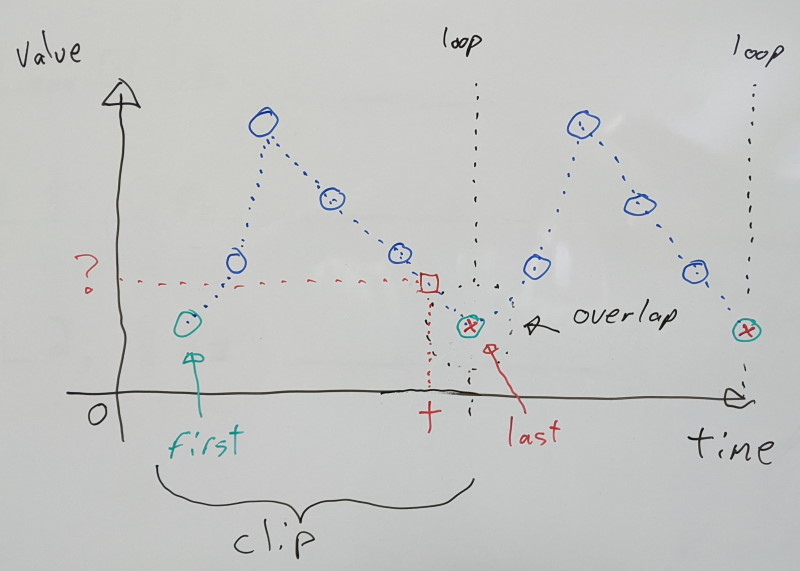 Value
loop
loop
?
overlap
0
first
t
last
time
clip